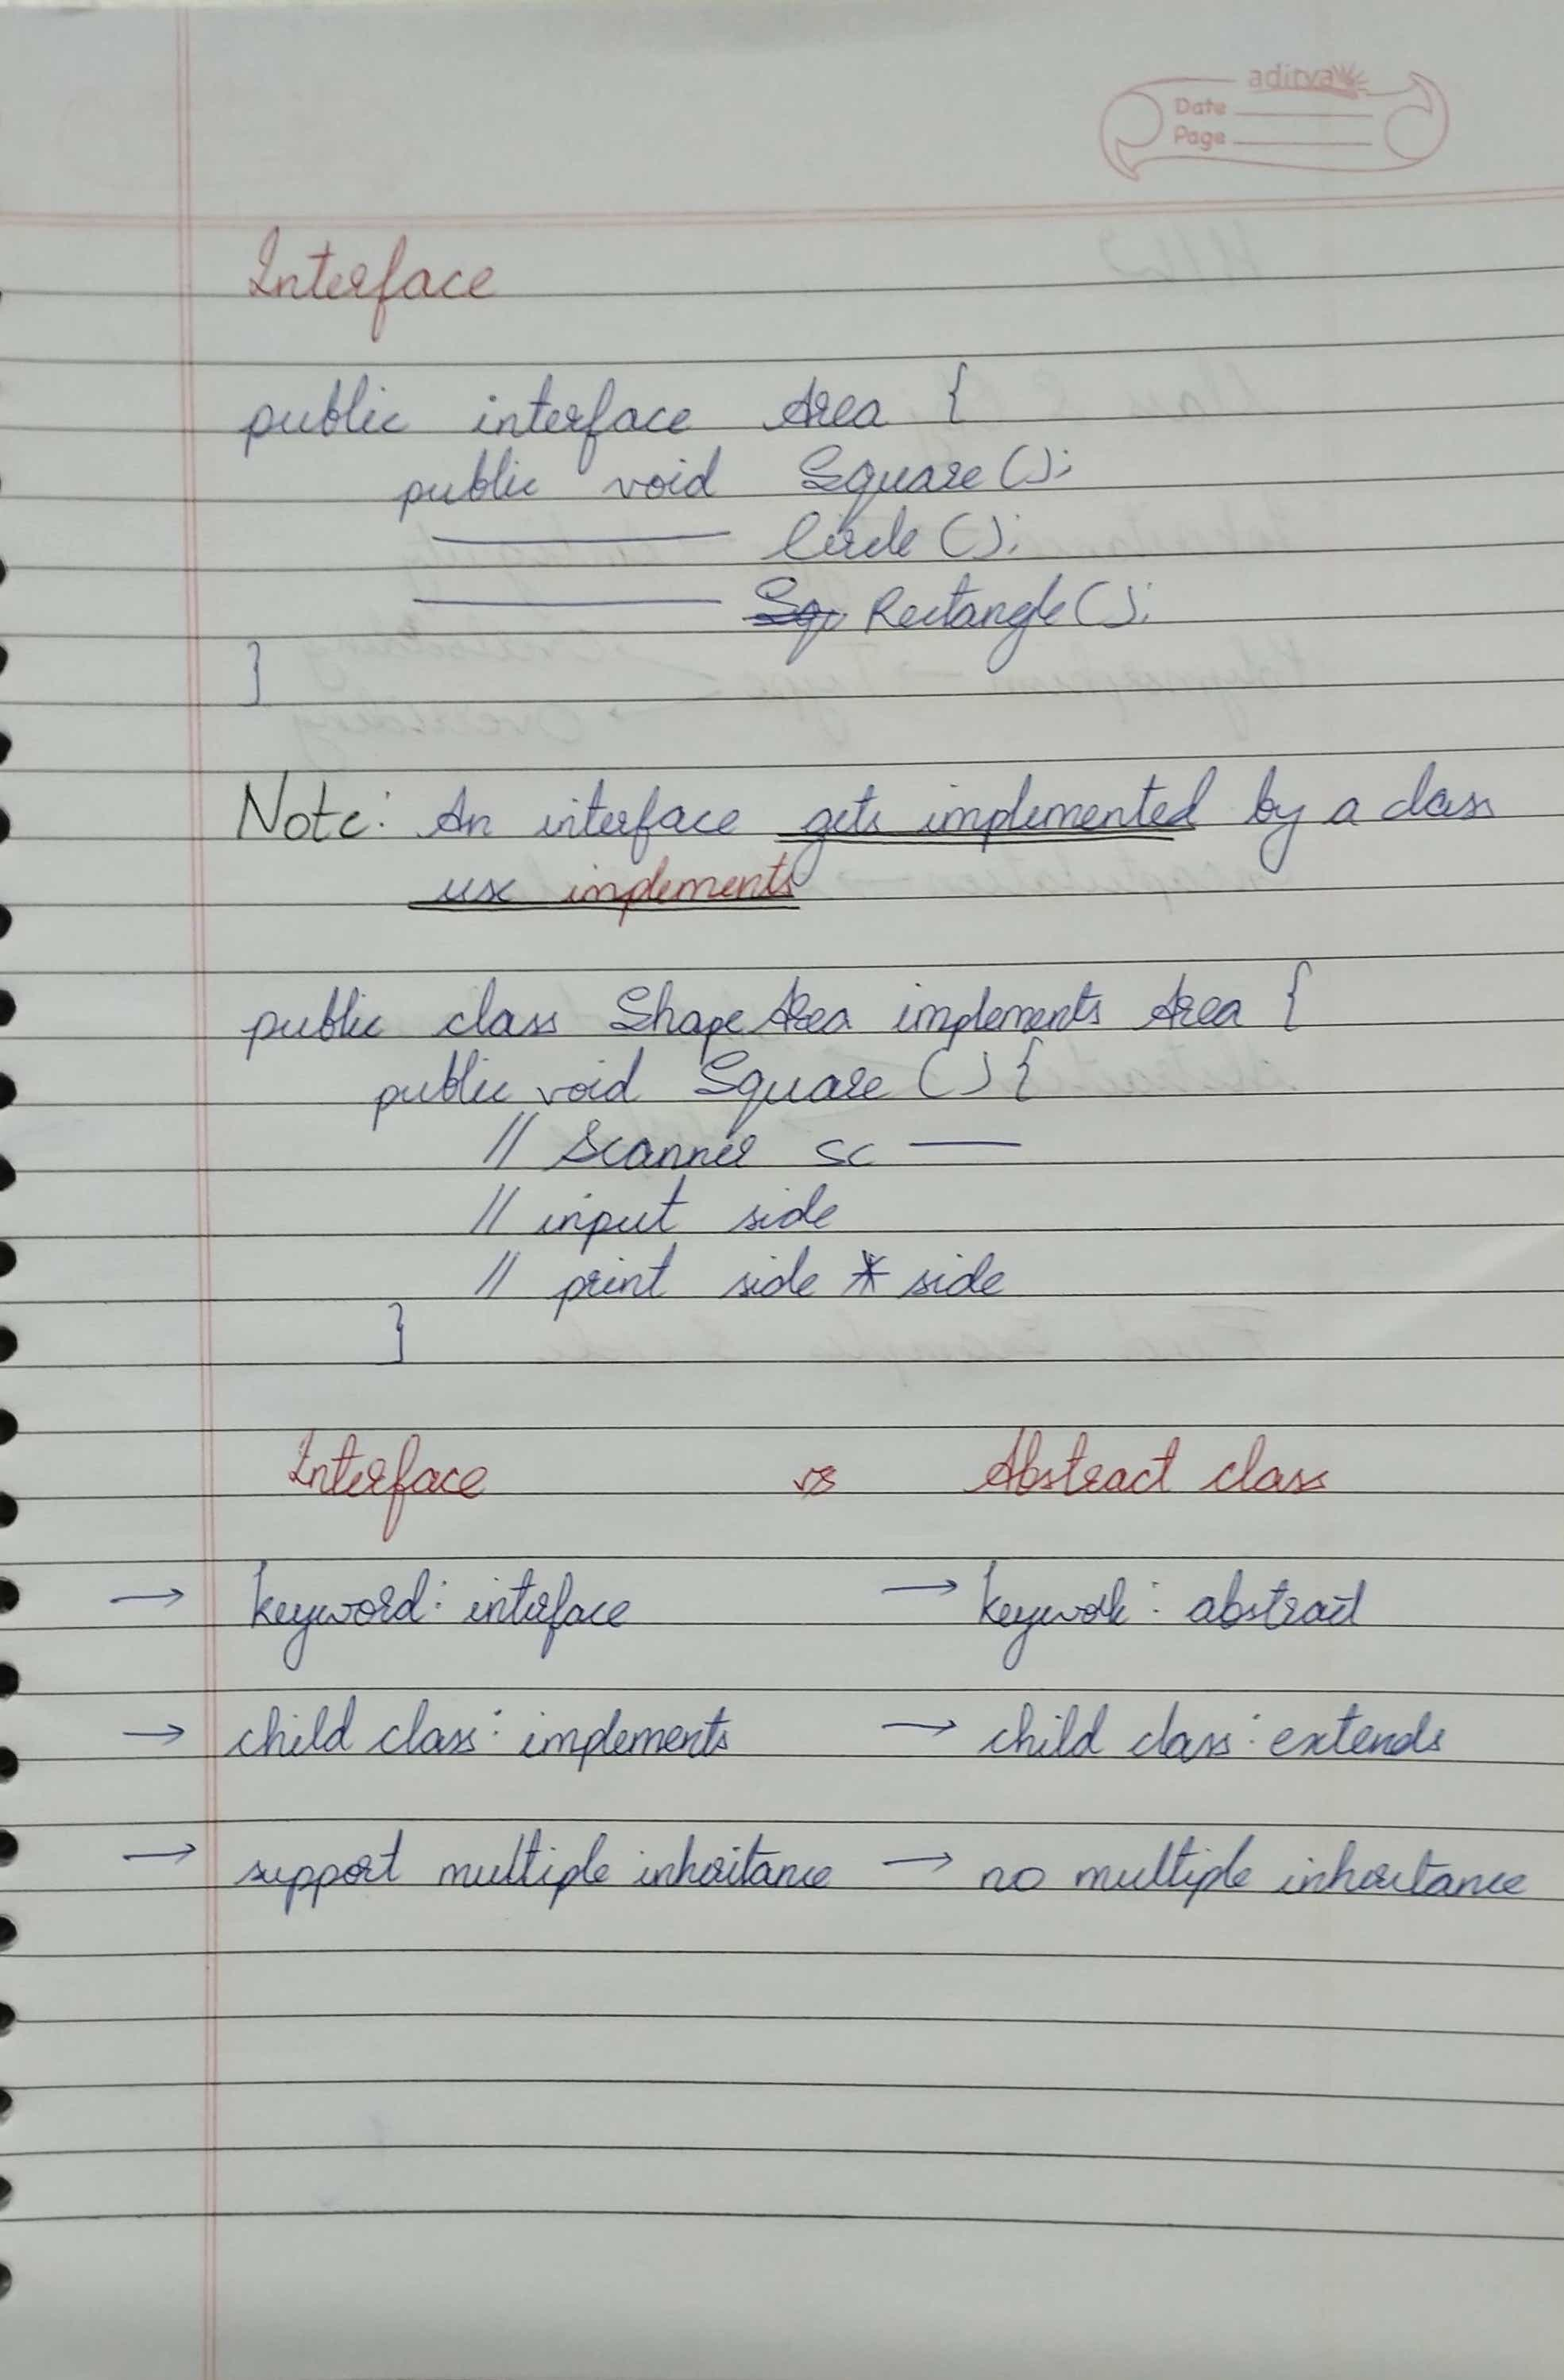 aditya
Date
Page
Interface
public interface Area {
public void Square();
Circle();
Squ Rectangle();
}
Note: An interface gets implemented by a class
use implements
public class ShapeArea implements Area {
public void Square(){
// Scanner sc
// input side
// print side * side
}
Interface vs Abstract class
→ keyword: interface → keywork: abstract
→ child class: implements → child class: extends
→ support multiple inheritance → no multiple inheritance